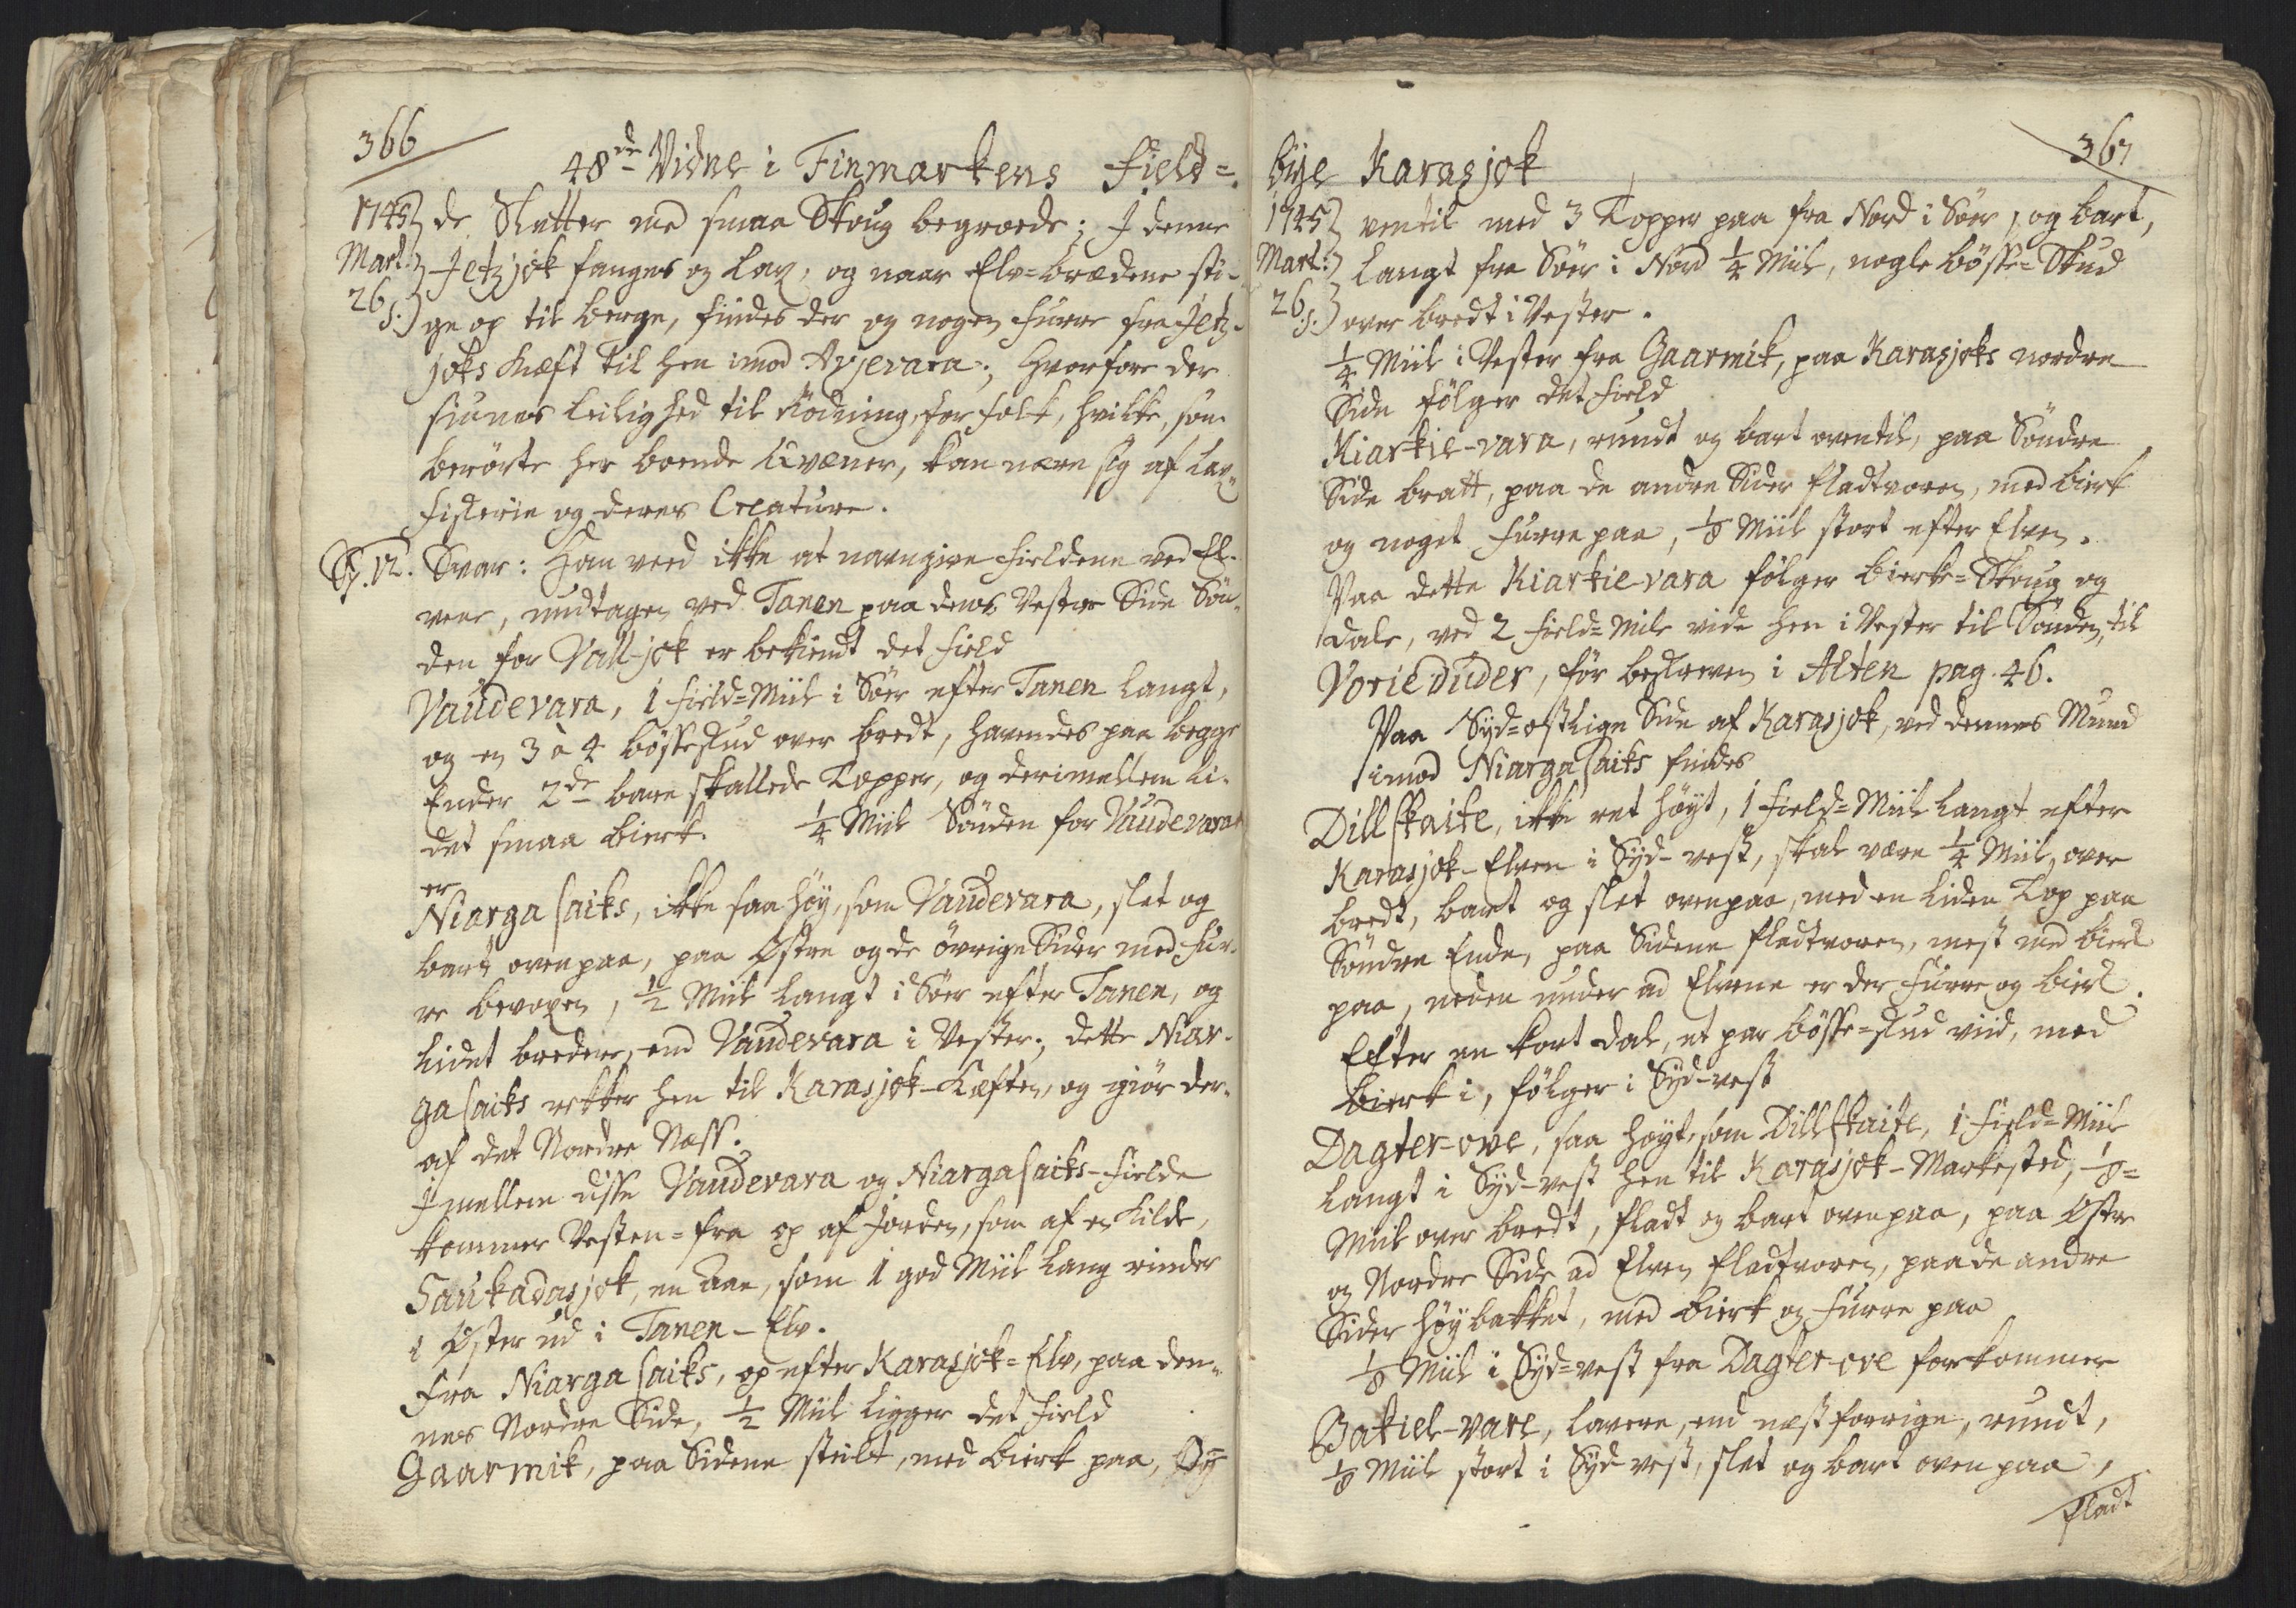 366
48de Vidne i Finmarkens Field=
1745 de Sletter med smaa Skoug begroede; I denne
Mart. Jetzjok fanges og Lax, og naar Elv=brædene sti-
26 s. ge op til berge, findes der og nogen Furre fra Jetz-
joks Kieft til hen imod Avjevara; hvorfore der
siunes leilighed til Rödning for folk, hvilke, som
berörte her boende Qvæner, kan nære sig af Lax-
fiskerie og deres Creature.
Sp. 12. Svar: Han veed ikke at navngive Fieldene ved El-
vene, undtagen ved Tanen paa dens Vestre Side Sön-
den for Vall-jok er bekiendt det Field
Vaudevara, 1 Field=Miil i Söer efter Tanen langt,
og en 3 à 4 bösseskud over bredt, havendes paa begge
Ender 2de bare skallede Topper, og derimellem li-
det smaa bierk. 1/4 Miil Sönden for Vaudevara
er
Niargasaiks, ikke saa höy, som Vaudevara, slet og
bart ovenpaa, paa Østre og de övrige Sider med Fur-
re bevoxen, 1/2 Miil langt i Söer efter Tanen, og
lidet bredere, end Vaudevara i Vester; dette Niar-
gasaiks rekker hen til Karasjok-Kieften, og giör der-
af det Nordre Næss.
Imellem disse Vaudevara og Niargasaiks-Fielde
kommer Vesten=fra op af Jorden, som af en Kilde,
Saukadasjok, en Aae, som 1 god Miil lang rinder
i Øster ud i Tanen-Elv.
Fra Niargasaiks, op efter Karasjok=Elv, paa den-
nes Nordre Side, 1/2 Miil ligger det Field
Gaarmik, paa Sidene steilt, med bierk paa,
bÿe Karasjok
367
1745 ventil med 3 Topper paa fra Nord i Söer, og bart,
Mart. langt fra Söer i Nord 1/4 Miil, nogle bösse=Skud
26 s. over bredt i Vester.
1/4 Miil i Vester fra Gaarmik, paa Karasjoks nordre
Side fölger det Field
Kiarkie-vara, rundt og bart oventil, paa Söndre
Side bratt, paa de andre Sider fladtvoren, med bierk
og noget Furre paa, 1/8 Miil stort efter Elven.
Paa dette Kiarkie-vara fölger bierke=Skoug og
Dale, ved 2 Field=Mile vide hen i Vester til Sönden, til
Vorieduder, för beskreven i Alten pag. 46.
Paa Syd=ostlige Side af Karasjok, ved dennes Mund
imod Niargasaiks findes
Dillskaite, ikke ret höyt, 1 Field=Miil langt efter
Karasjok-Elven i Syd-vest, skal være 1/4 Miil, over
bredt, bart og slet ovenpaa, med en liden Top paa
Söndre Ende, paa Sidene fladtvoren, mest med bierk
paa, neden under ad Elvene er der Furre og bierk.
Efter en kort Dal, et par bösse=skud viid, med
bierk i, fölger i Syd-vest
Dagter-ove, saa höyt, som Dillskaite, 1 Field=Miil
langt i Syd-vest hen til Karasjok-Markested, 1/8=
Miil over bredt, fladt og bart ovenpaa, paa Østre
og Nordre Side ad Elven fladtvoren, paa de andre
Sider höybakket, med bierk og Furre paa
1/8 Miil i Syd=vest fra Dagter-ove forkommer
Bakiel-vare, lavere, end næst forrige, rundt,
1/8 Miil stort i Syd vest, slet og bart ovenpaa,
fladt